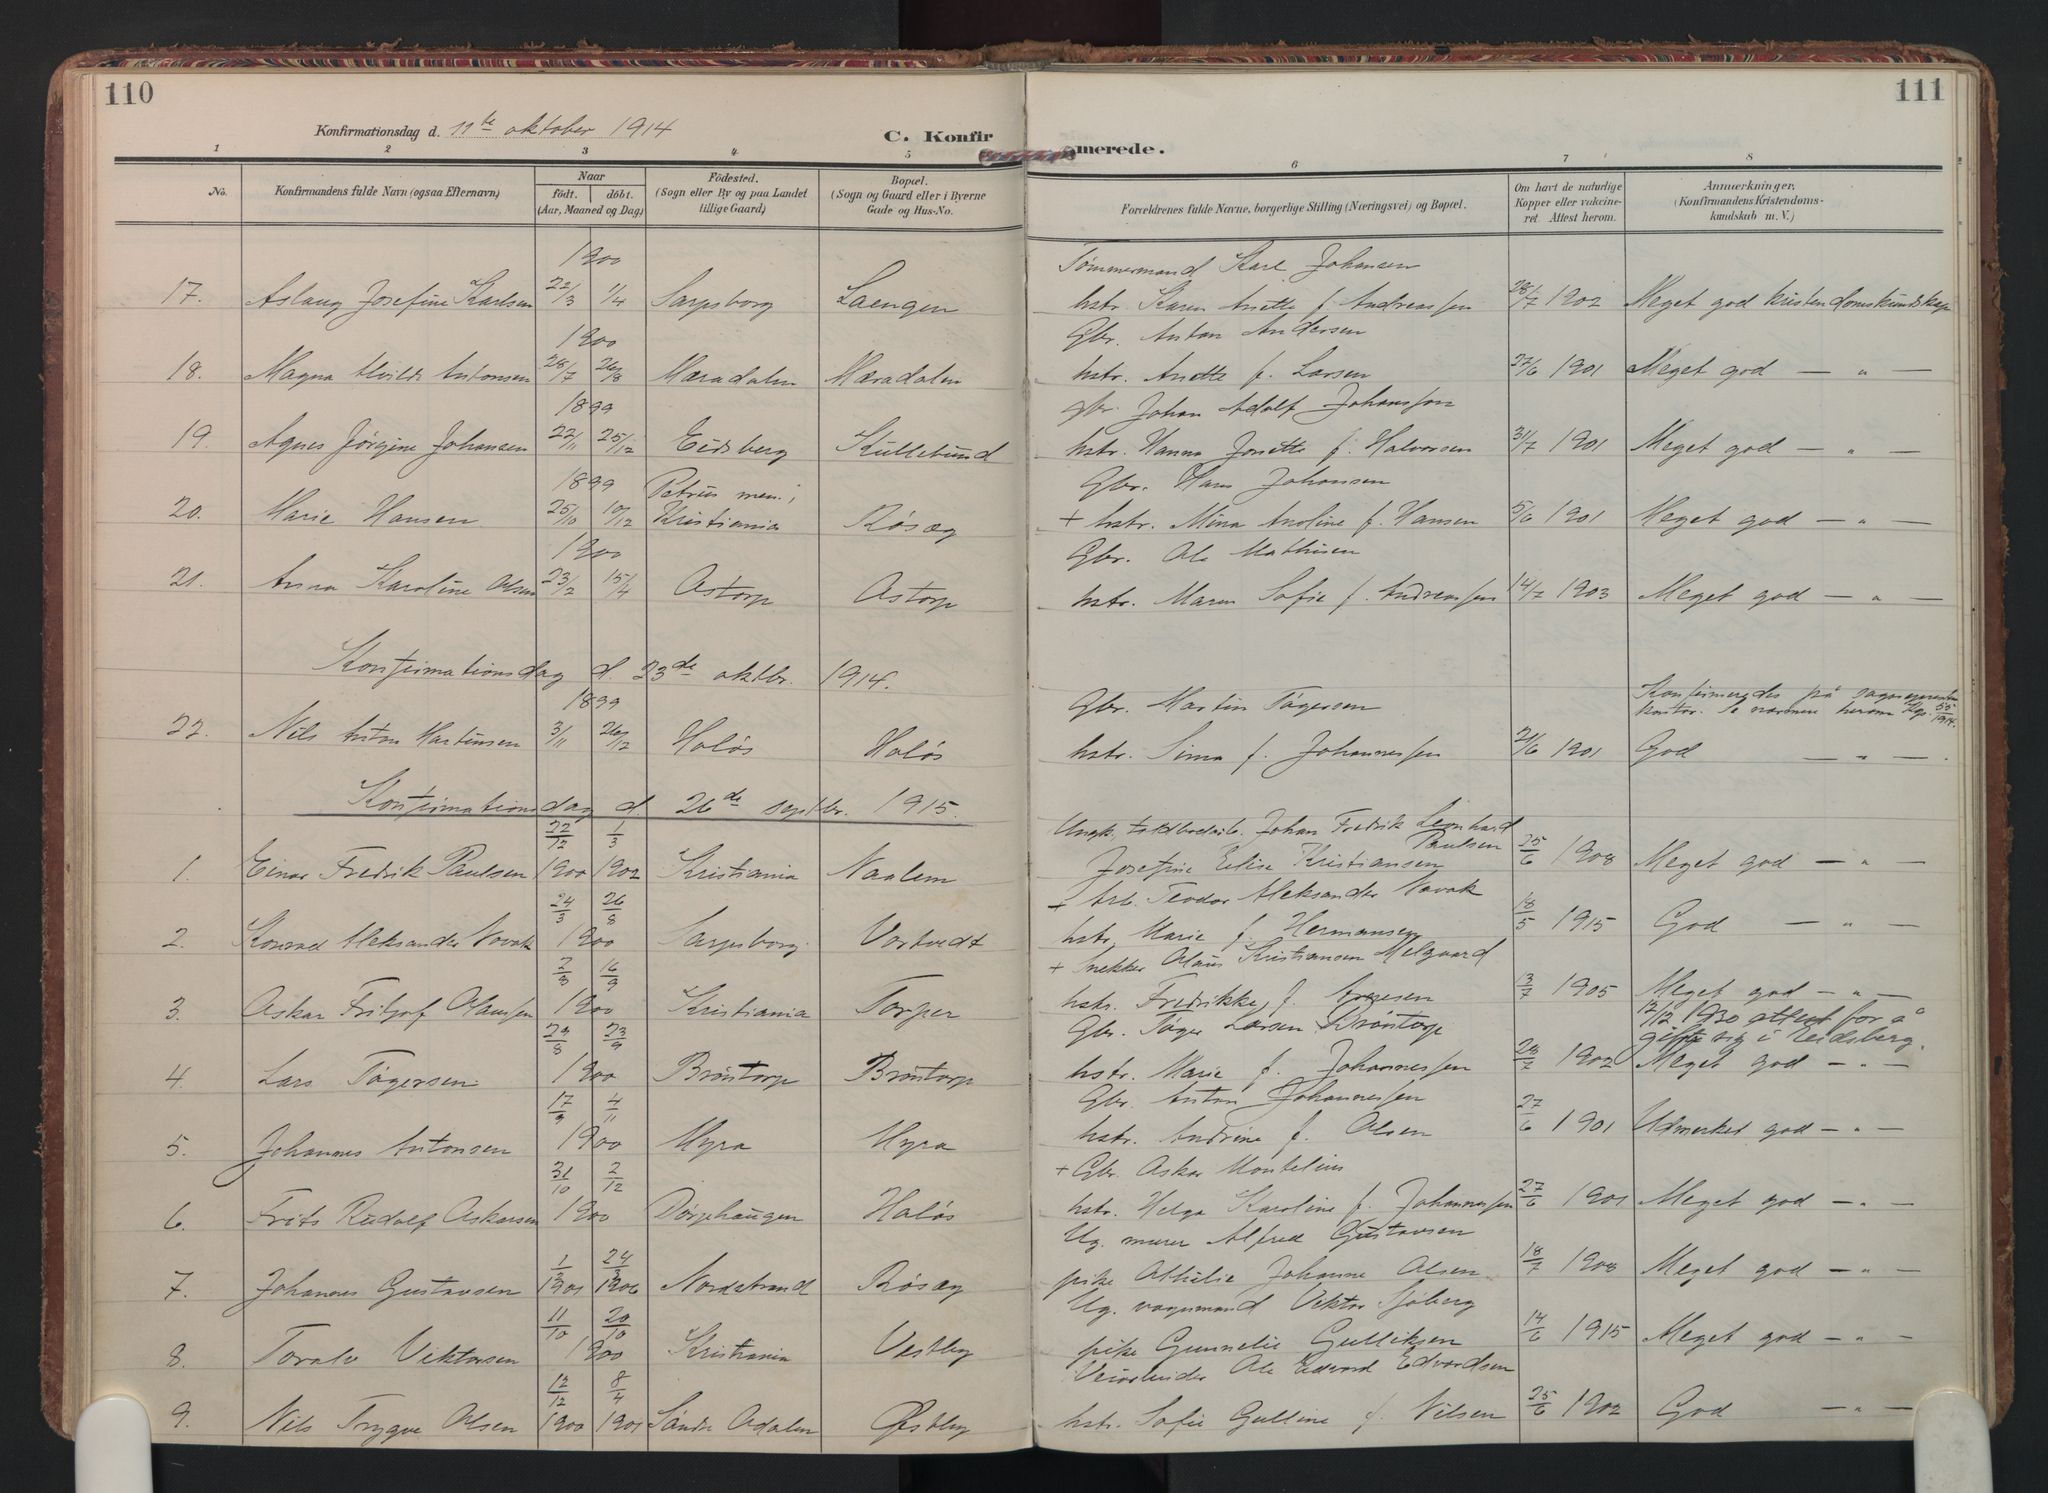 110
Konfirmationsdag d. 11te oktober 1914
C. Konfir
1 2 3 4 5
No. Konfirmandens fulde Navn (ogsaa Efternavn) Naar født. døbt. (Aar, Maaned og Dag) Fødested. (Sogn eller By og paa Landet tillige Gaard) Bopæl. (Sogn og Gaard eller i Byerne Gade og Hus-No.
1900
17. Aslaug Josefine Karlsen 22/3 1/4 Sarpsborg Laengen
1900
18. Magna Alvilde Antonsen 28/7 26/8 Mæradalen Mæradalen
1899
19. Agnes Jørgine Johansen 22/11 25/12 Eidsberg Kullebund
1899 Petrus men. i
20. Marie Hansen 25/10 10/12 Kristiania Røsæg
1900
21. Anna Karoline Olsen 23/2 15/4 Astorp Astorp
Konfirmationsdag d. 23de oktbr. 1914.
1899
22. Nils Anton Martinsen 3/11 26/12 Holøs Holøs
Konfirmationsdag d. 26de septbr. 1915.
22/12 1/3
1. Einar Fredrik Paulsen 1900 1902 Kristiania Naalem
24/3 26/8
2. Konrad Aleksander Novak 1900 Sarpsborg Vortvedt
2/3 16/9
3. Oskar Fritjof Olaussen 1900 Kristiania Torper
29/8 23/9
4. Lars Tøgersen 1900 Brøntorp Brøntorp
17/9 4/11
5. Johannes Antonsen 1900 Myra Myra
31/10 2/12
6. Frits Rudolf Oskarsen 1900 Holøs
1/3 24/3
7. Johannes Gustavsen 1901 1906 Nordstrand Røsæg
11/10 20/10
8. Toralv Viktorsen 1900 Kristiania Vestby
12/12 8/4
9. Nils Trygve Olsen 1900 1901 Søndre Odalen Østby
111
merede.
6 7 8
Forældrenes fulde Navne, borgerlige Stilling (Næringsvei) og Bopæl. Om havt de naturlige Kopper eller vakcineret Attest herom. Anmærkninger. (Konfirmandens Kristendomskundskab m. V.)
Tømmermand Karl Johansen
hstr. Karen Anette f. Andreassen 28/7 1902 Meget god kristendomskundskap
Gbr. Anton Andersen
hstr. Anette f. Larsen 27/6 1901 Meget god — " —
Gbr. Johan Adolf Johanssen
hstr. Hanna Jonette f. Halvorsen 31/7 1901 Meget god — " —
Gbr. Hans Johansen
+ hstr. Mina Anoline f. Hansen 5/6 1901 Meget god — " —
Gbr. Ole Mathisen
hstr. Maren Sofie f. Andreassen 14/7 1903 Meget god — " —
Konfirmeredes på sogneprestens
Gbr. Martin Tøgersen kontor. Se nærmere herom Kgs. 55/1914.
hstr. Sina f. Johannessen 21/6 1901 God — " —.
Ungk. Johan Fredrik Leonhard Paulsen
Josefine Elise Kristiansen 25/6 1908 Meget god — " —
+ Arb. Teodor Aleksander Novak
hstr. Marie f. Hermansen 18/5 1915 God — " —
+ Snekker Olaus Kristiansen Melgaard
hstr. Fredrikke f. Arnesen 13/7 1905 Meget god — " —
Gbr. Tøger Larsen Brøntorp 12/12 1930 attest for å gifte sig i Eidsberg.
hstr. Marie f. Johannessen 28/7 1902 Meget god — " —
Gbr. Anton Johannessen
hstr. Andrine f. Olsen 27/6 1901 Udmerket god — " —
+ Gbr. Oskar Montelius
hstr. Helga Karoline f. Johannessen 27/6 1901 Meget god — " —
Ug. murer Alfred Gustavsen
pike Othilie Johanne Olsen 18/7 1908 Meget god — " —
Ug. vognmand Viktor Sjøberg
pike Gunnelie Gulliksen 14/6 1915 Meget god — " —
Veiarbeider Ole Edvard Edvardsen
hstr. Sofie Gulline f. Nilsen 25/6 1902 God — " —